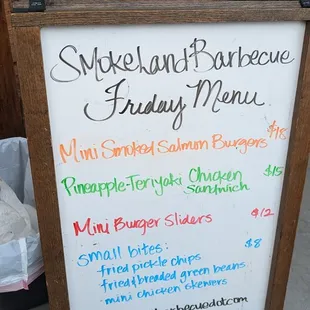 Smokehand Barbecue
Friday Menu
Mini Smoked Salmon Burgers $18
Pineapple-Teriyaki Chicken Sandwich $15
Mini Burger Sliders $12
small bites: $8
fried pickle chips
fried & breaded green beans
mini chicken skewers